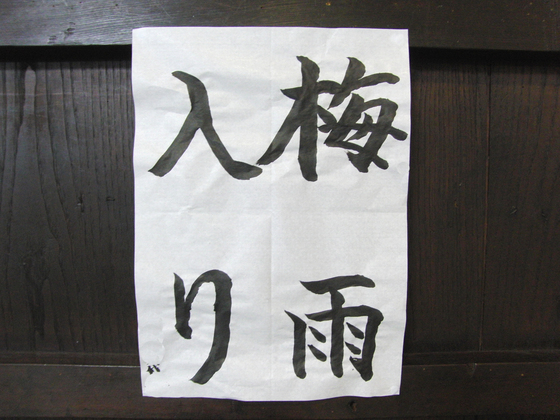 梅雨
入り